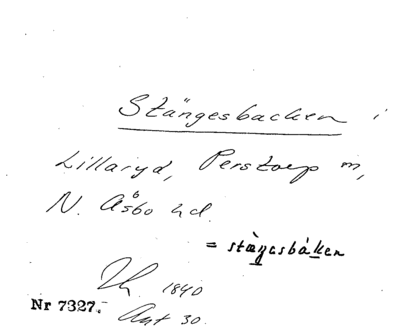 Stängesbacken i
Lillaryd, Perstorp sn,
N. Åsbo hd.
= stæ̀ŋesbàken
1840
Nr 7327.
Ant 30.